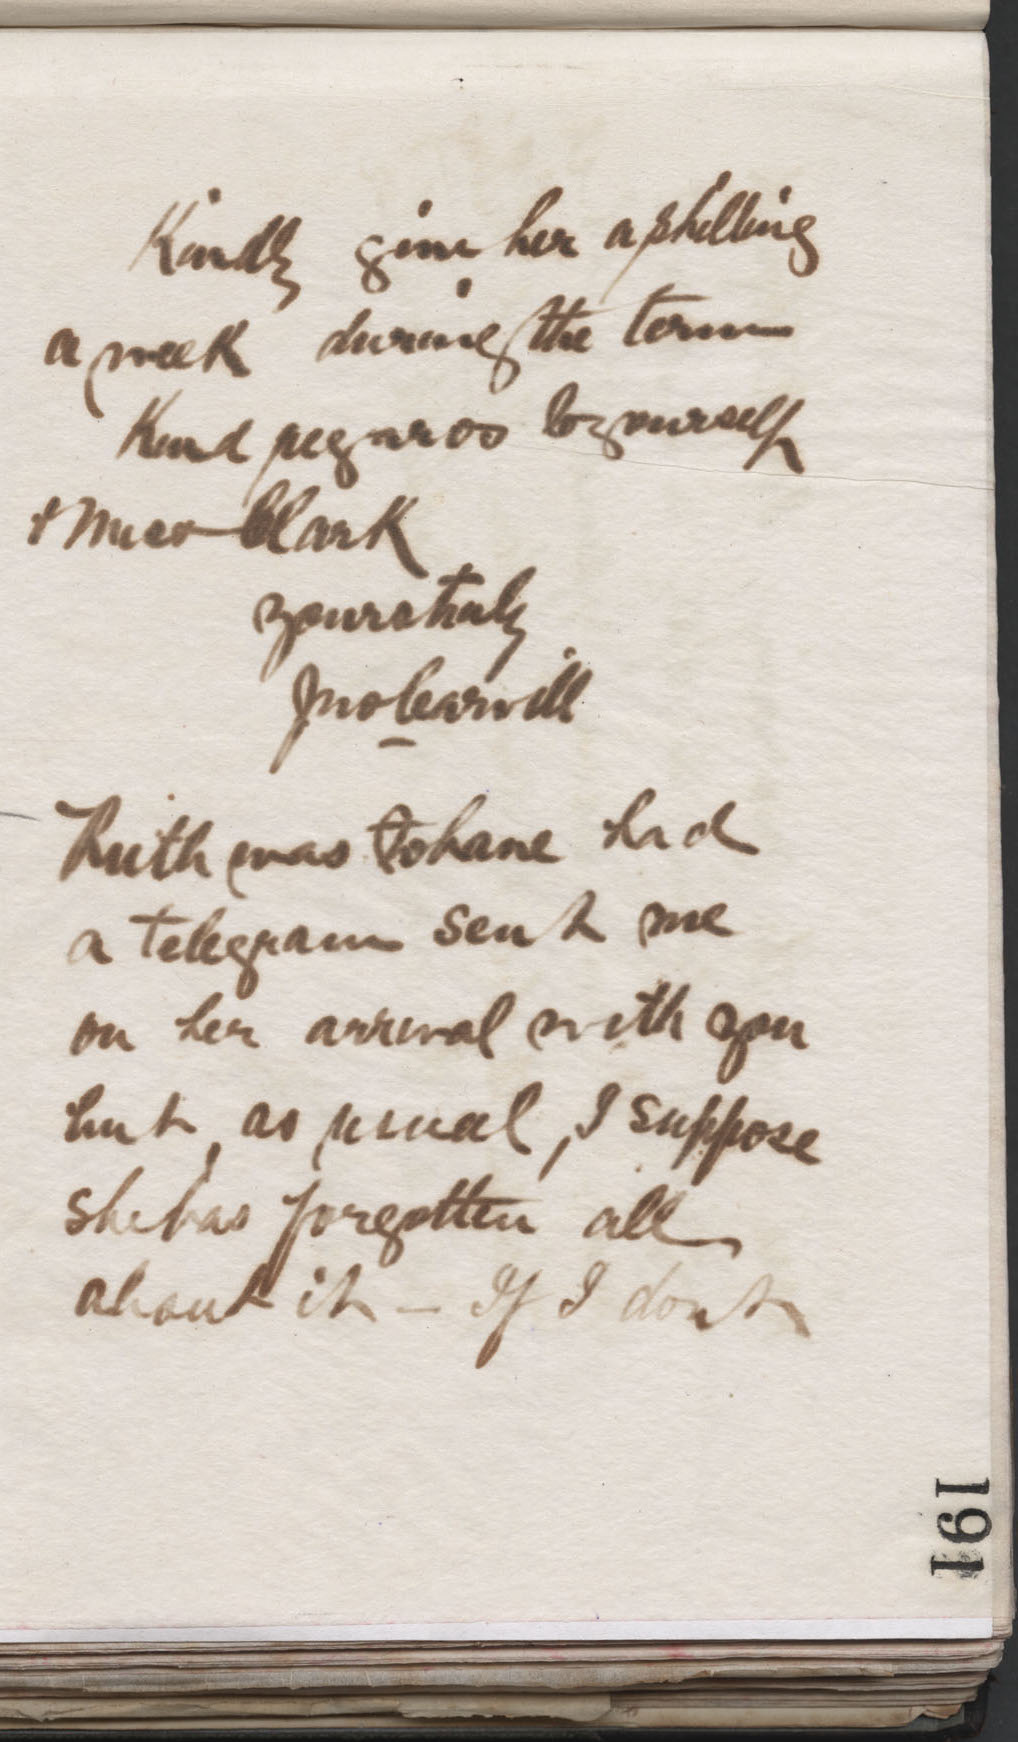 Kindly give her a shilling
a week during the term
Kind regards to yourself
& Miss Clark
yours truly
Jno Carvill
Ruth was to have had
a telegram sent me
on her arrival with you
but, as usual, I suppose
she has forgotten all
about it - If I dont
191